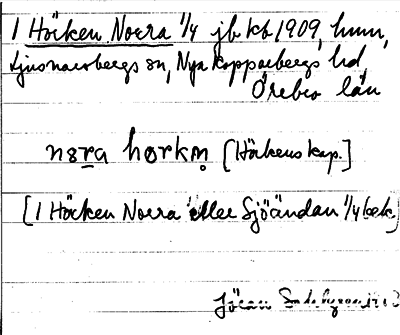 1 Hörken Norra 1/4 jbkb 1909, hmn,
Ljusnarsbergs sn, Nya Kopparbergs hd,
Örebro län
nøra hørkn̥ [Hörkens kap.]
[1 Hörken Norra eller Sjöändan 1/4 bek.]
Jöran